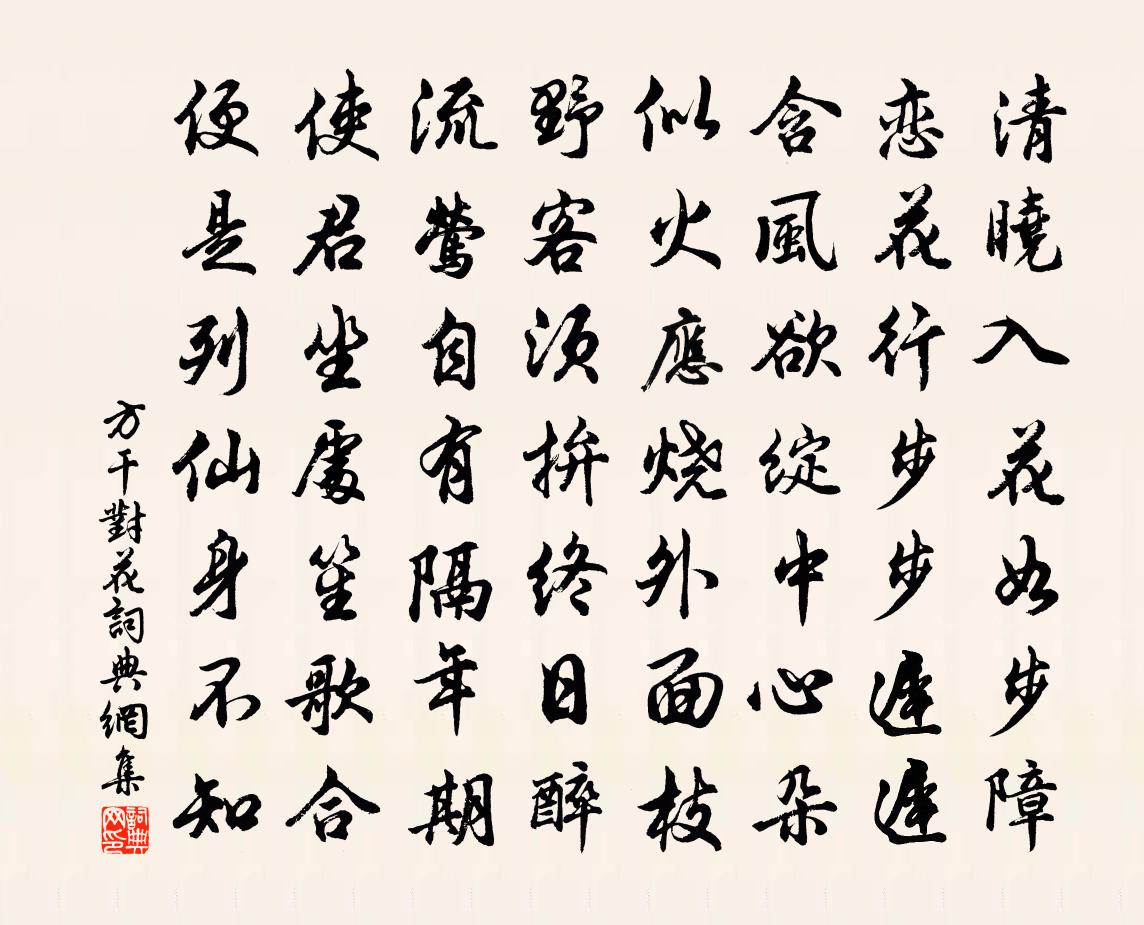 清曉入花如步障
恋花行步步遲遲
含風欲綻中心朵
似火應烧外面枝
野客須拚終日醉
流鶯自有隔年期
使君坐處笙歌合
便是列仙身不知
方干對花詞典網集
詞典网印